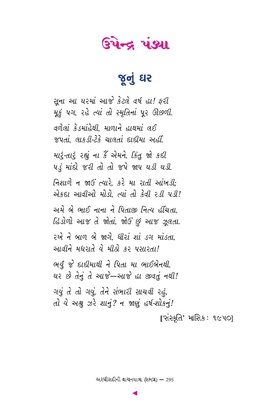 ઉપેન્દ્ર પંડ્યા
જૂનું ઘર
સૂના આ ઘરમાં આજે કેટલે વર્ષ હા! ફરી
મૂકું પગ, રહે ત્યાં તો સ્મૃતિનાં પૂર ઊછળી.
વળેલાં કેડમાંહેથી, માળાને હાથમાં લઈ
જપતાં, લાકડીટેકે ચાલતાં દાદીમા અહીં.
મારું-તારું રહ્યું ના કૈં એમને, કિંતુ જો કદી
પડું માંદો જરી તો તો જપે જાપ ઘડી ઘડી.
નિશાળે ન જાઉં ત્યારે, કરે મા રાતી આંખડી;
એકદા આવીઓ મોડો, ત્યાં તો કેવી રડી પડી!
અમે બે ભાઈ નાના ને પિતાજી નિત્ય હીંચતા,
હિંડોળો આજ તે જોતાં, જોઉં છું આજ ઝૂલતા.
રખે ને બાળ બે જાગે, ધીરાં શાં ડગ માંડતા,
આવીને મધરાતે વે મીઠો કર પસારતા!
ભર્યું જે દાદીમાથી ને પિતા મા ભાઈબેનથી,
ઘર છે તેનું તે આજે—આજે હા જીવતું નથી!
ગયું તે તો ગયું, તેને સંભારી રાચવી રહું,
તો વે અશ્રુ ઝરે શાનું? ન જાણું હર્ષ-શોકનું!
['સંસ્કૃતિ' માસિક: ૧૯૫૦]
— 295